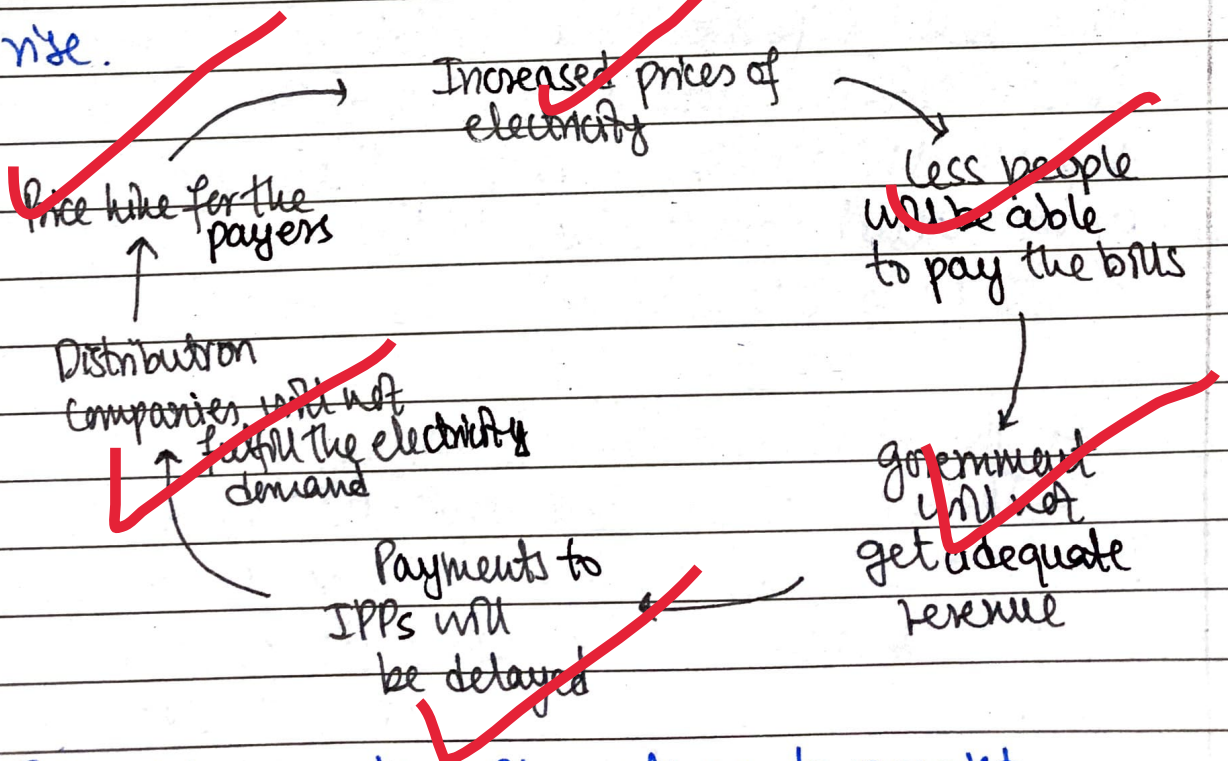 rise.
Increased prices of
electricity
Less people
will be able
to pay the bills
government
will not
get adequate
revenue
Payments to
IPPs will
be delayed
Distribution
Companies will not
fulfill the electricity
demand
Price hike for the
payers